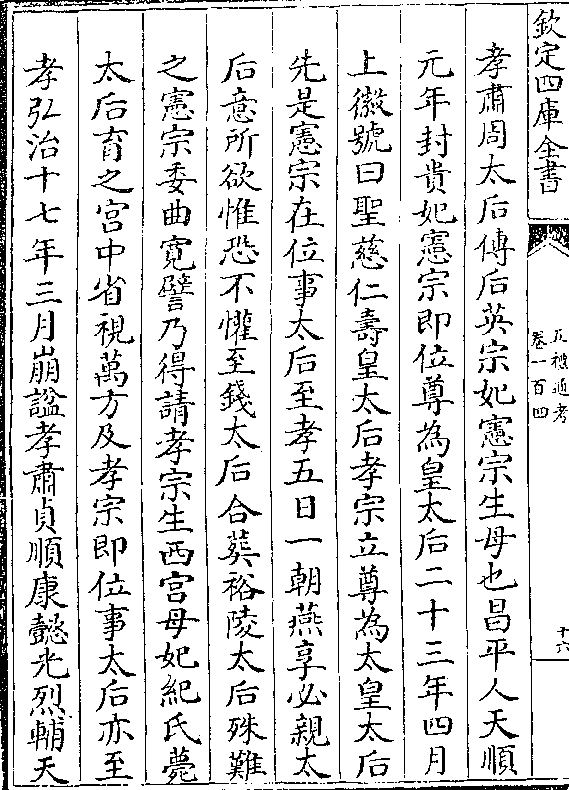 欽定四庫全書
五禮通考
卷一百四
十六
孝肅周太后傳后英宗妃憲宗生母也昌平人天順
元年封貴妃憲宗即位尊為皇太后二十三年四月
上徽號曰聖慈仁壽皇太后孝宗立尊為太皇太后
先是憲宗在位事太后至孝五日一朝燕享必親太
后意所欲惟恐不懽至錢太后合葬裕陵太后殊難
之憲宗委曲寛譬乃得請孝宗生西宮母妃紀氏薨
太后育之宮中省視萬方及孝宗即位事太后亦至
孝弘治十七年三月崩諡孝肅貞順康懿光烈輔天